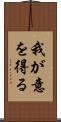 我が意
を得る